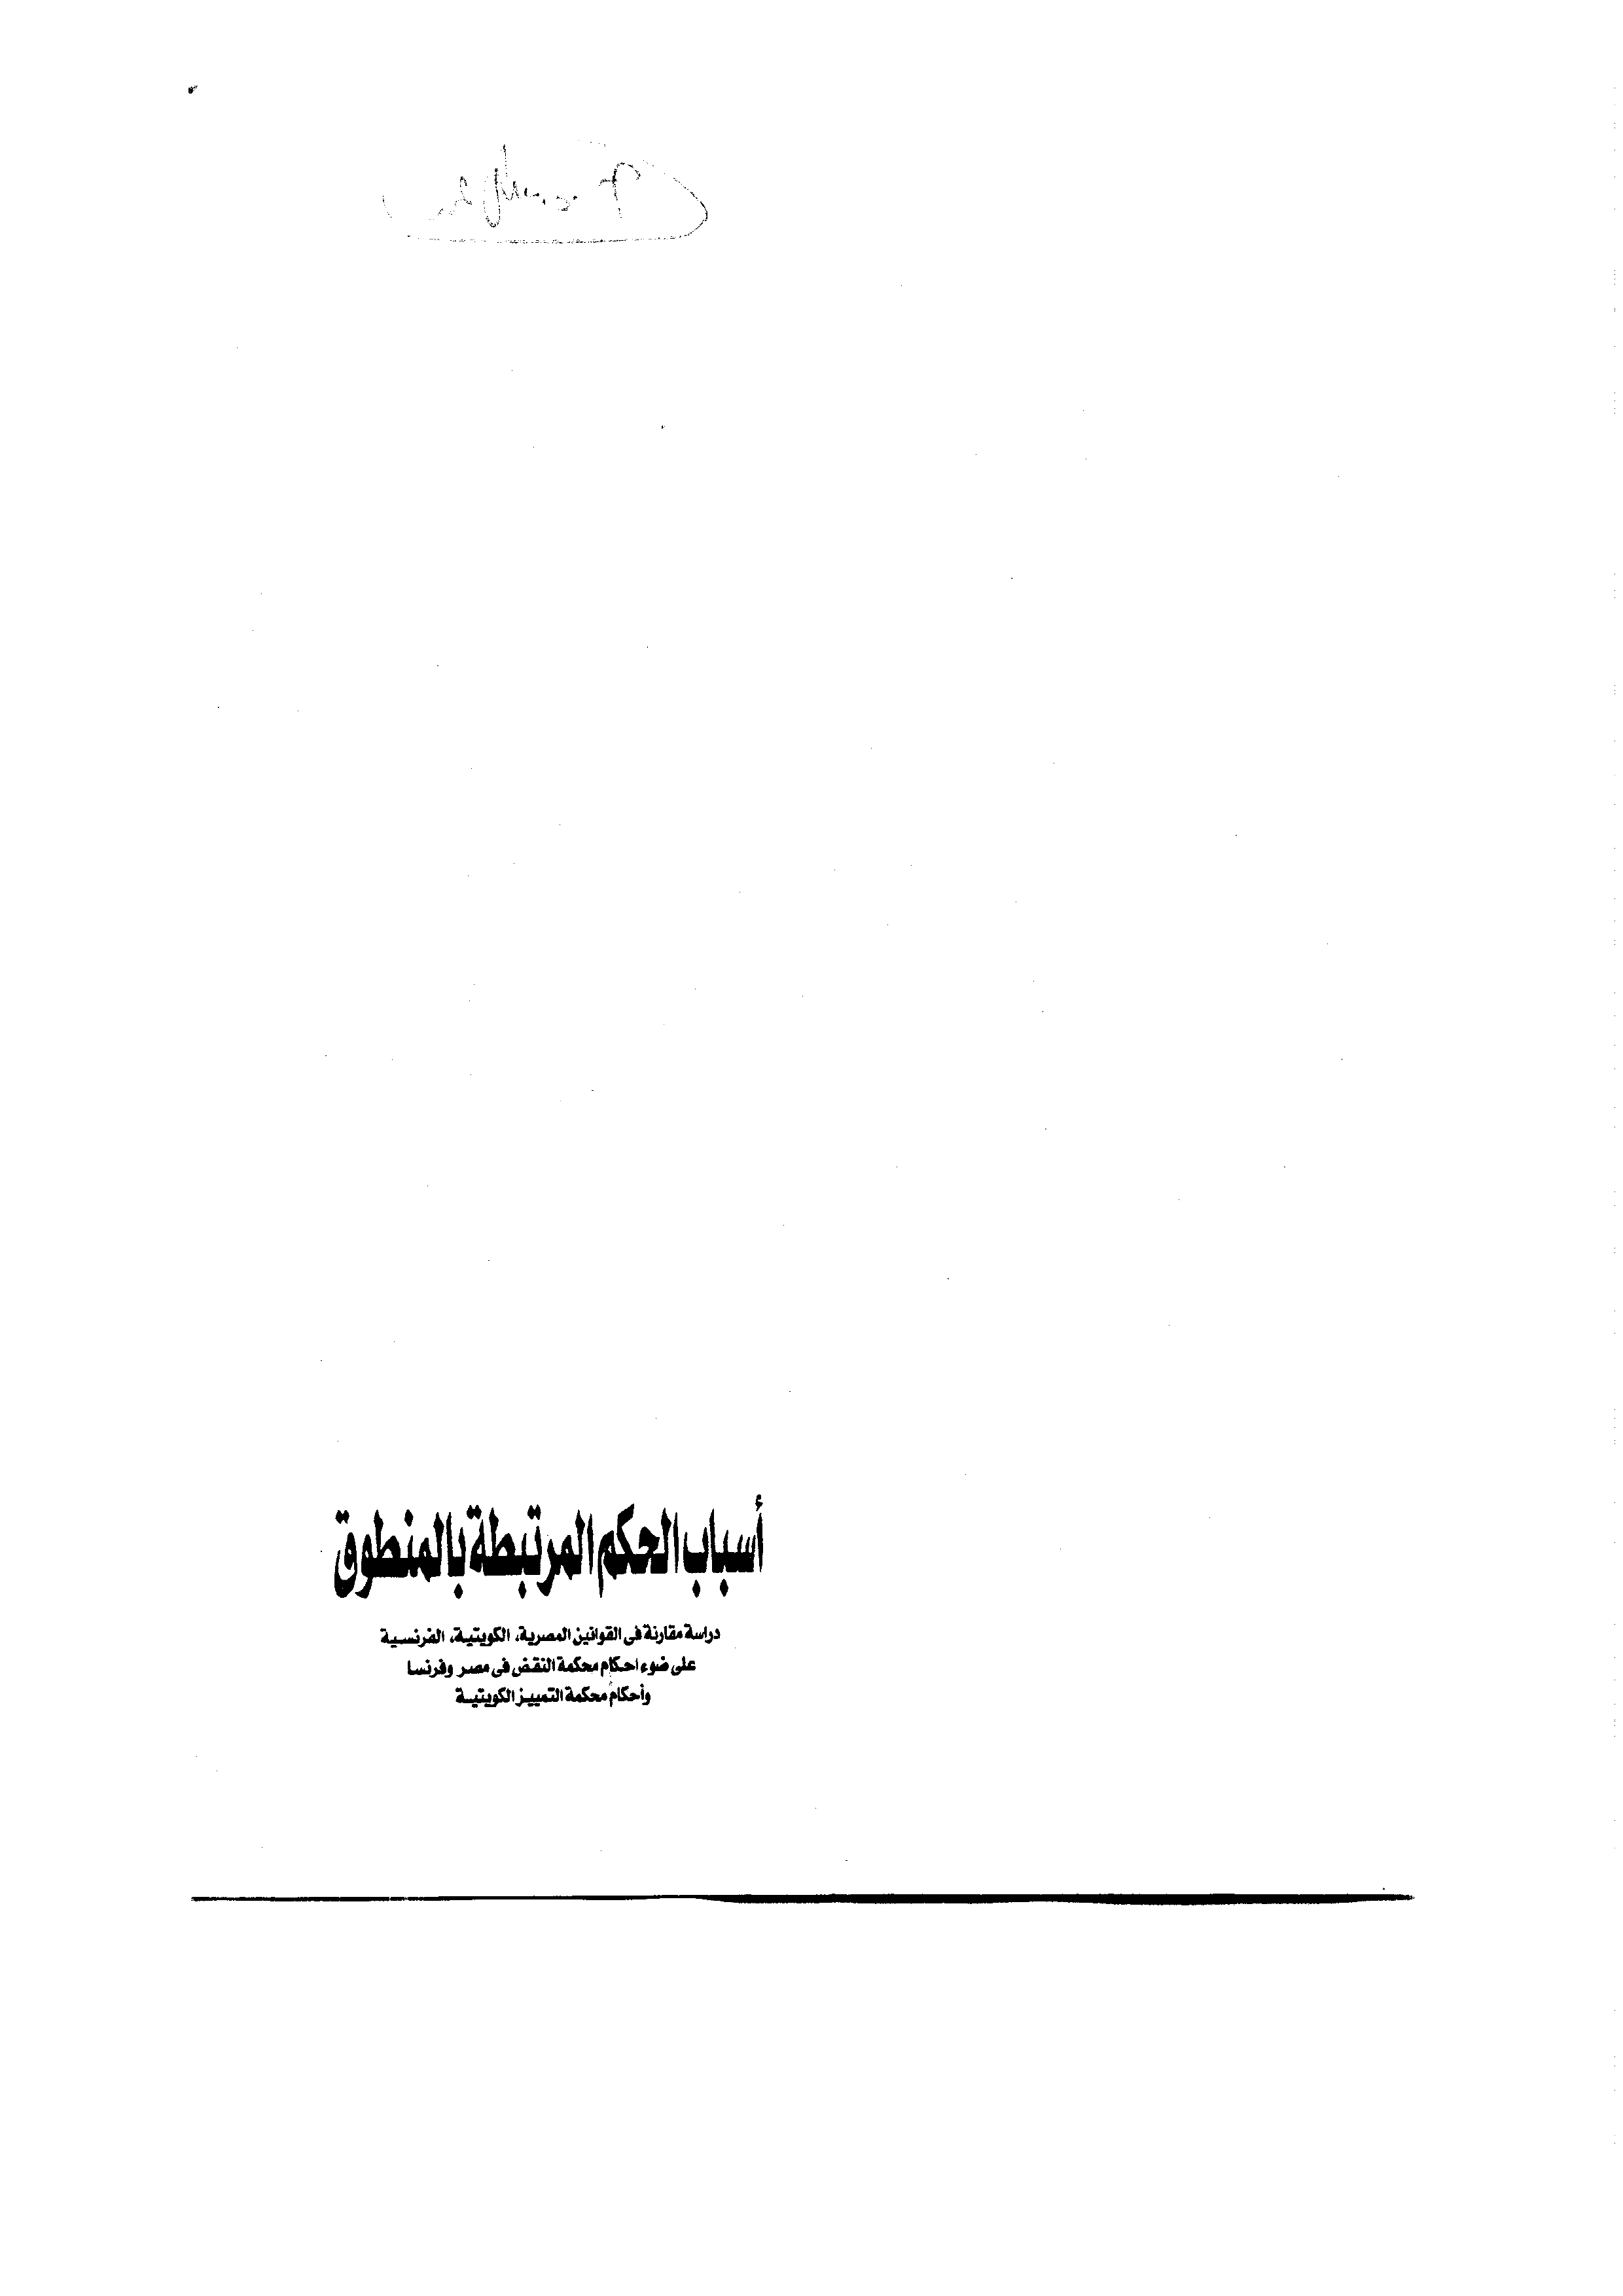 أسباب الحكم المرتبطة بالمنطوق
دراسة مقارنة فى القوانين المصرية، الكويتية، الفرنسية
على ضوء احكام محكمة النقض فى مصر وفرنسا
وأحكام محكمة التمييز الكويتية